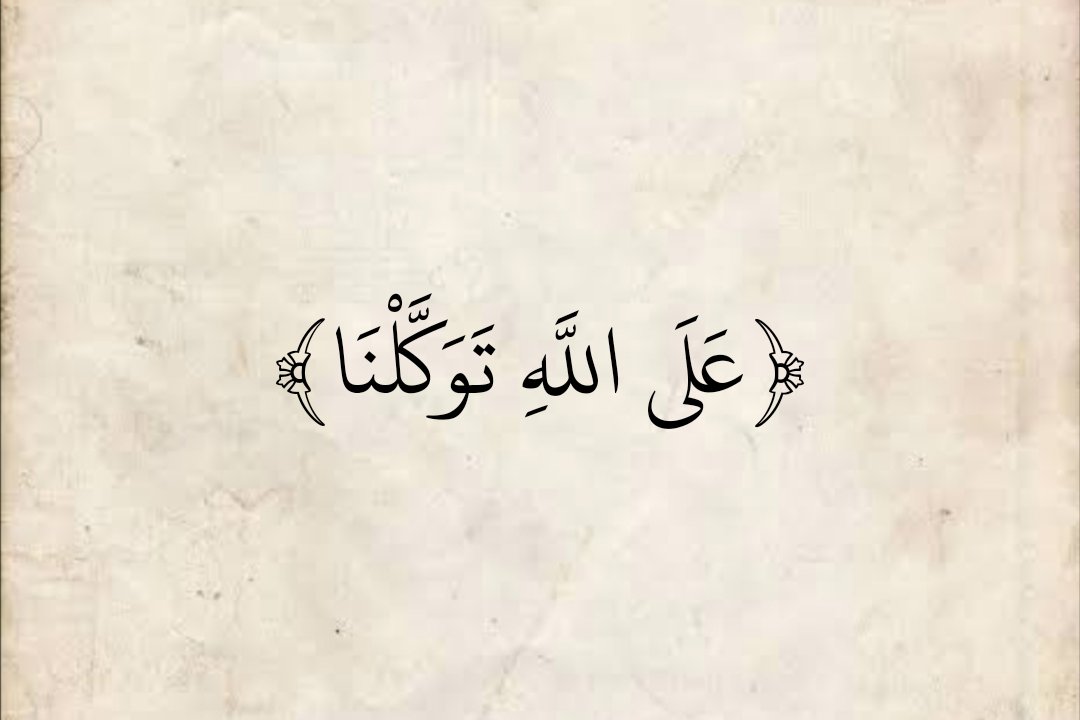 ﴿عَلَى اللَّهِ تَوَكَّلْنَا﴾